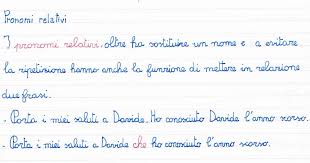 Pronomi relativi
I pronomi relativi, oltre ha sostituire un nome e a evitare
la ripetizione hanno anche la funzione di mettere in relazione
due frasi.
- Porta i miei saluti a Davide. Ho conosciuto Davide l'anno scorso.
- Porta i miei saluti a Davide che ho conosciuto l'anno scorso.